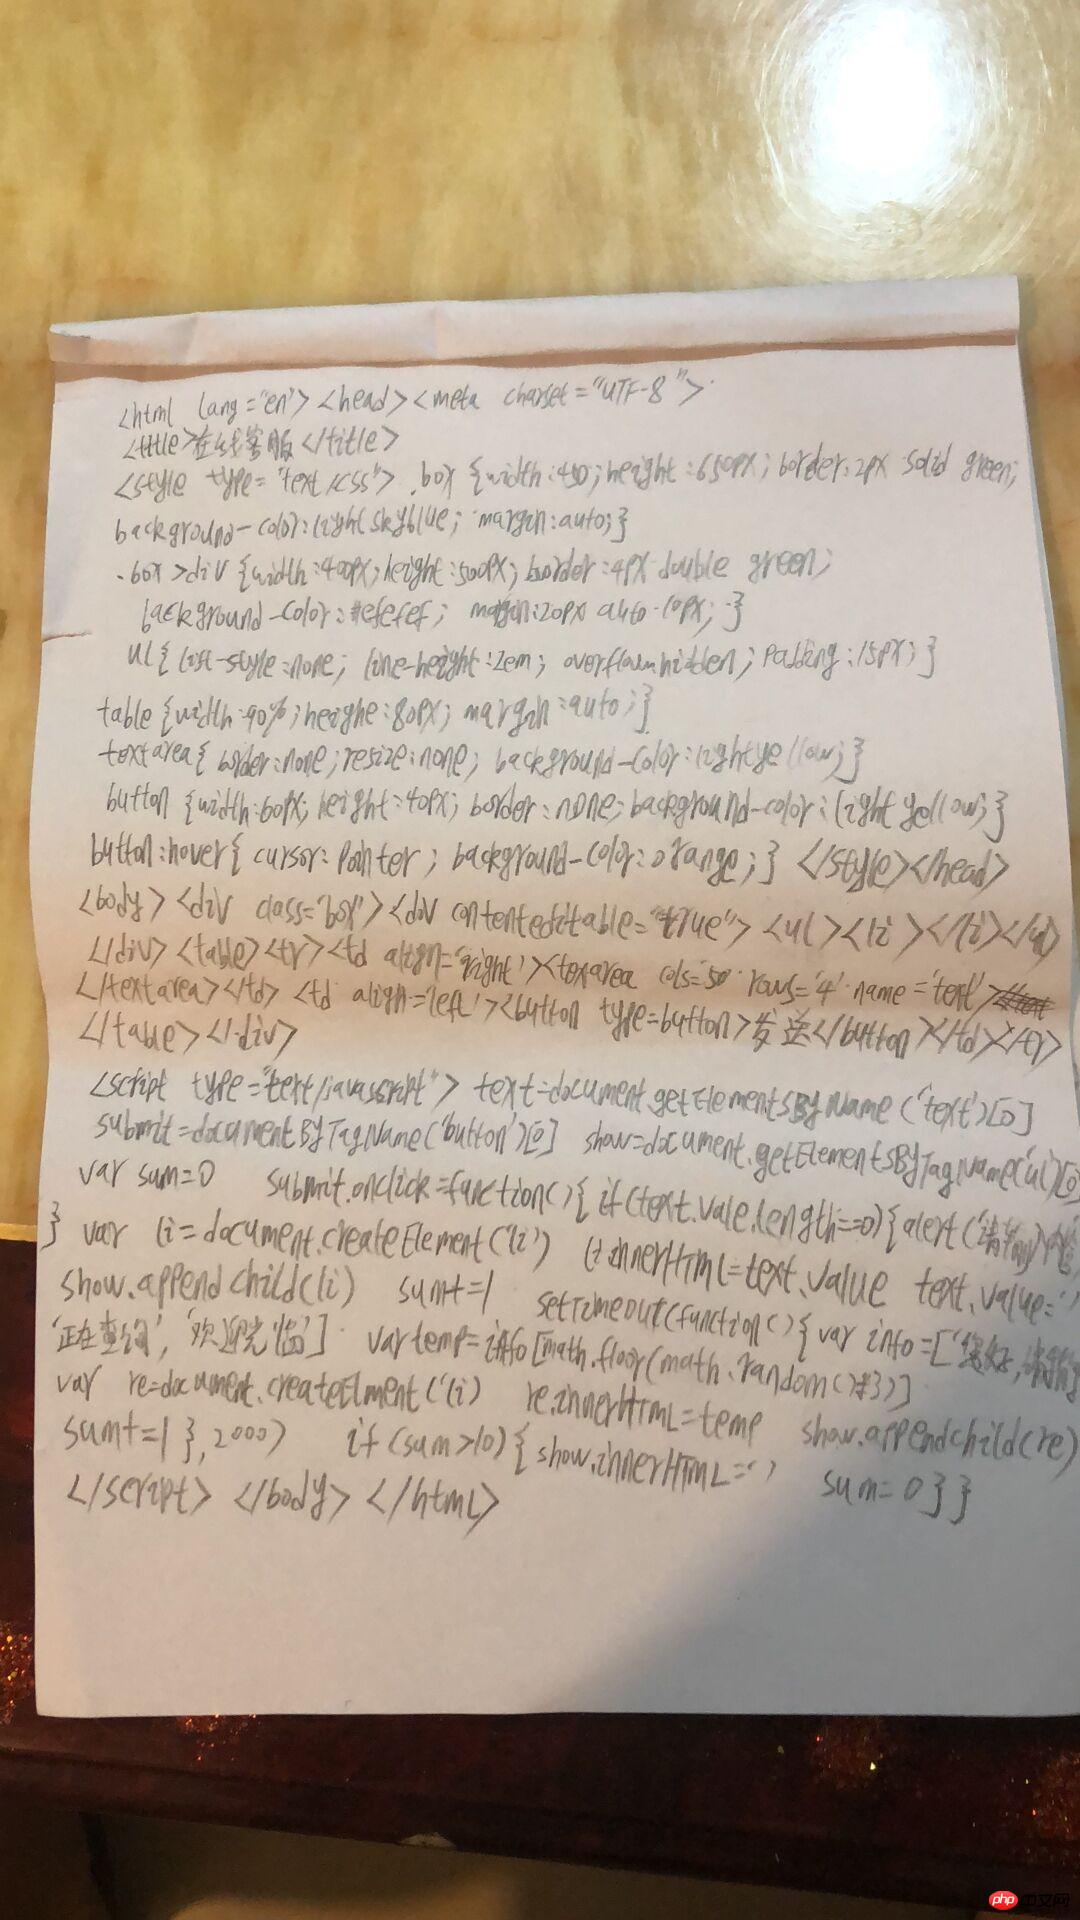 <html lang='en'><head><meta charset="UTF-8">
<tttle>在线客服</title>
<style type="text/css"> .box {width:450;height:650px;border:2px solid green;
background-color:lightskyblue; margin:auto;}
.box>div {width:400px;height:500px;border:4px double green;
background-color:#efefef; margin:20px auto 10px;}
ul{list-style:none; line-height:2em; overflow:hidden; padding:15px;}
table {width:90%;heighe:80px; margin:auto;}
textarea{border:none;resize:none; background-color:lightyellow;}
button {width:60px;height:40px;border:none;background-color:lightyellow;}
button:hover{cursor:pointer; background-color:orange;} </style></head>
<body><div class="box"><div contenteditable="true"> <ul><li></li></ul>
</div><table><tr><td align='right'><texarea cols='50' rows='4' name='text'>
</textarea></td> <td align='left'><button type=button>发送</button></td></tr>
</table></div>
<script type="text/javascript"> text=document.getElementsByName('text')[0]
submit=documentByTagName('button')[0] show=document.getElementsByTagName('ul')[0]
var sum=0 submit.onclick=function(){if(text.vale.length==0){alert('
} var li=document.createElement('li') li.innerHTML=text.value text.value=''
show.appendchild(li) sum+=1 setTimeout(function(){var info=['您好,
'正在查询','欢迎光临'] var temp=info[math.floor(math.random()*3)]
var re=document.createElment('li) re.innerHTML=temp show.appendchild(re)
sum+=1},2000) if(sum>10){show.innerHTML='' sum=0}}
</script></body></html>
php 中文网